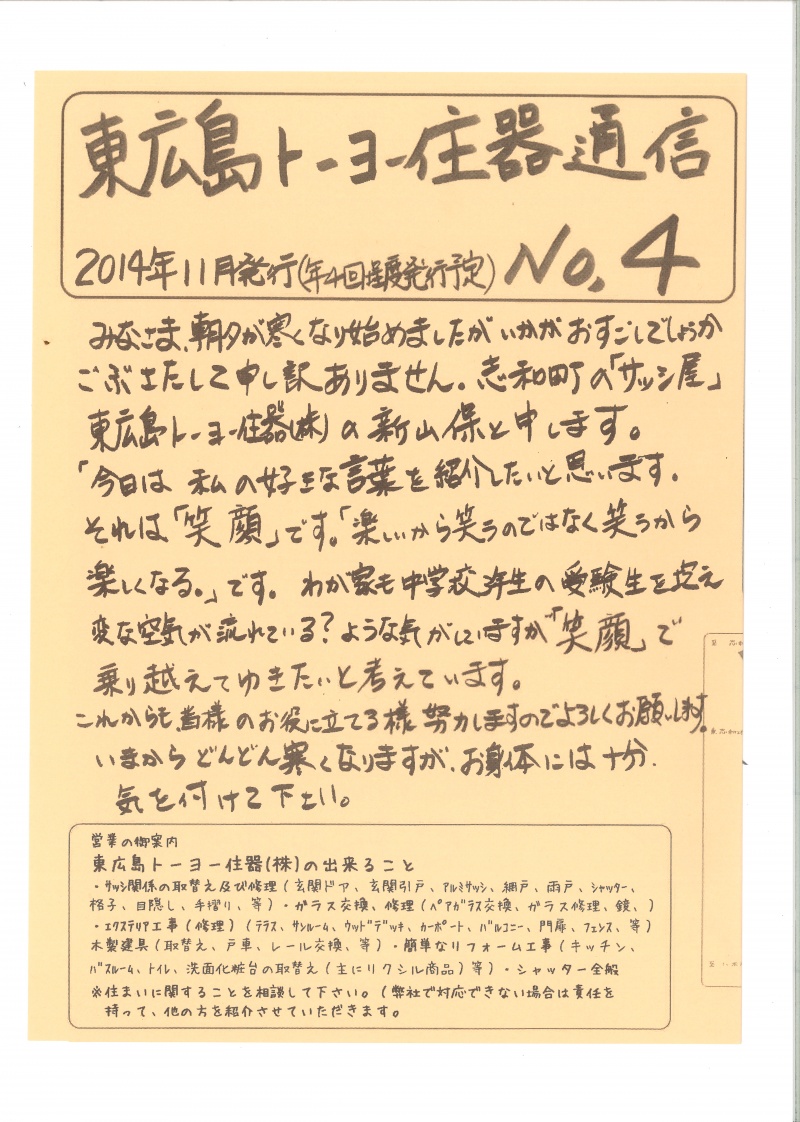 東広島トーヨー住器通信
2014年11月発行(年4回程度発行予定) No.4
みなさま、朝夕が寒くなり始めましたがいかがおすごしでしょうか
ごぶさたして申し訳ありません。志和町の「サッシ屋」
東広島トーヨー住器(株)の新山保と申します。
「今日は私の好きな言葉を紹介したいと思います。
それは「笑顔」です。「楽しいから笑うのではなく笑うから
楽しくなる。」です。わが家も中学校3年生の受験生を控え
変な空気が流れている?ような気がしていますが「笑顔」で
乗り越えてゆきたいと考えています。
これからも皆様のお役に立てる様努力しますのでよろしくお願いします。
いまからどんどん寒くなりますが、お身体には十分
気を付けて下さい。
営業の御案内
東広島トーヨー住器(株)の出来ること
・サッシ関係の取替え及び修理(玄関ドア、玄関引戸、アルミサッシ、網戸、雨戸、シャッター、
格子、目隠し、手摺り、等)・ガラス交換、修理(ペアガラス交換、ガラス修理、鏡、)
・エクステリア工事(修理)(テラス、サンルーム、ウッドデッキ、カーポート、バルコニー、門扉、フェンス、等)
木製建具(取替え、戸車、レール交換、等)・簡単なリフォーム工事(キッチン、
バスルーム、トイレ、洗面化粧台の取替え(主にリクシル商品)等)・シャッター全般
※住まいに関することを相談して下さい。(弊社で対応できない場合は責任を
持って、他の方を紹介させていただきます。